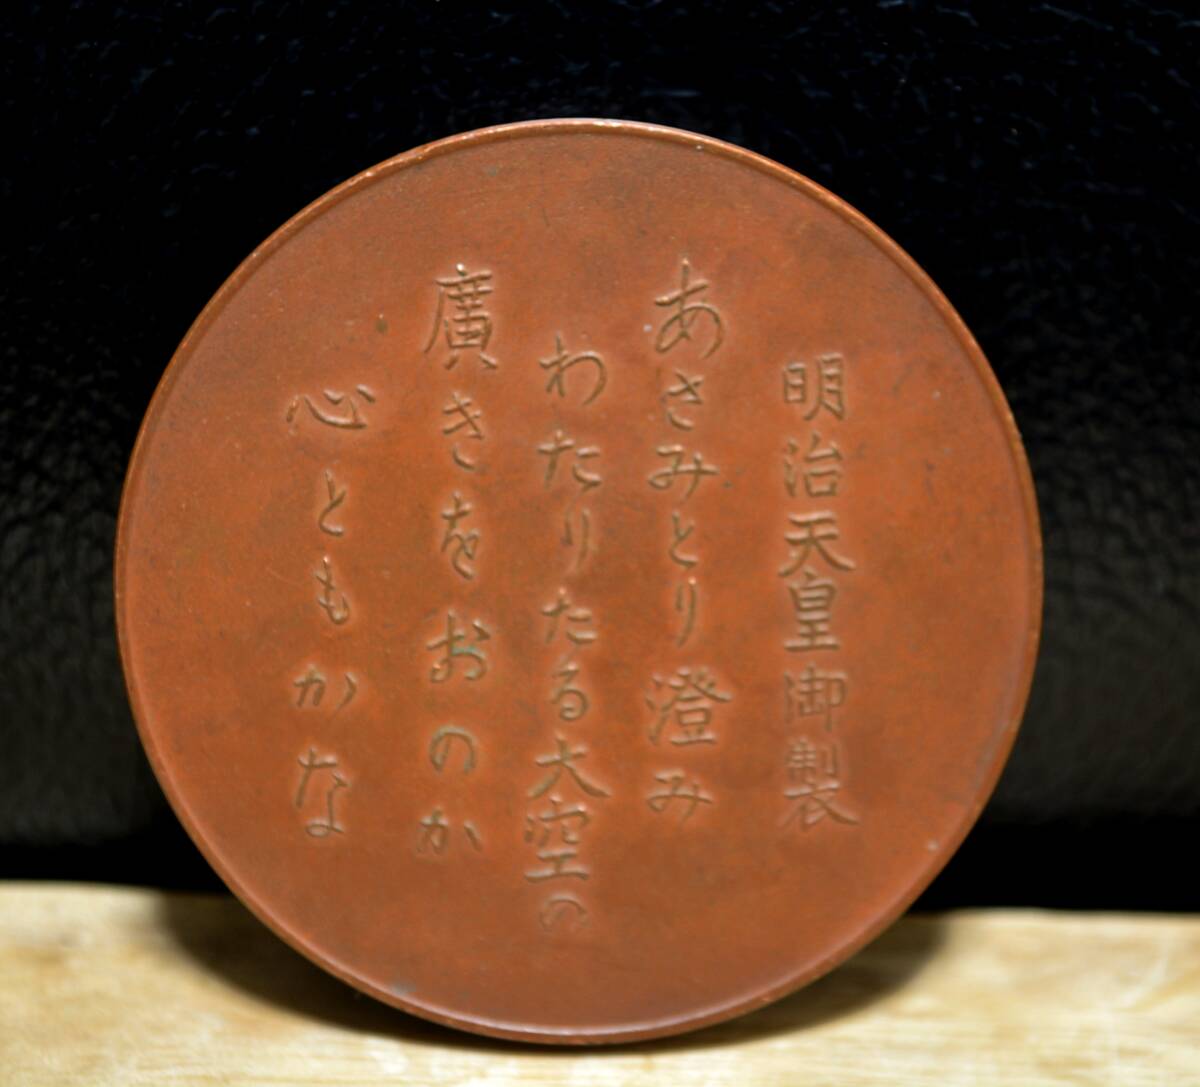 明治天皇御製
あさみとり澄み
わたりたる大空の
廣きをおのか
心ともかな